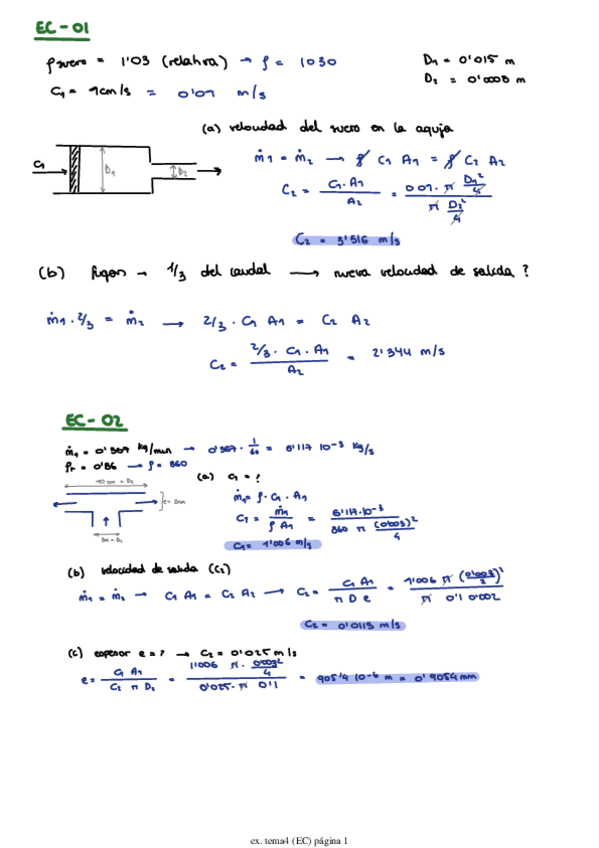 EC-01
ρsuero = 1'03 (relativa) → ρ = 1030
D1 = 0'015 m
D2 = 0'0008 m
C1 = 1cm/s = 0'01 m/s
(a) velocidad del suero en la aguja
C1
D1
D2
ṁ1 = ṁ2 → ρ C1 A1 = ρ C2 A2
C2 = C1 · A1 / A2 = 0'01 · π D1²/4 / π D2²/4
C2 = 3'516 m/s
(b) fugas → 1/3 del caudal → nueva velocidad de salida ?
ṁ1 · 2/3 = ṁ2 → 2/3 · C1 A1 = C2 A2
C2 = 2/3 · C1 · A1 / A2 = 2'344 m/s
EC-02
ṁ1 = 0'367 kg/min → 0'367 · 1/60 = 6'117 10⁻³ kg/s
ρr = 0'86 → ρ = 860
(a) C1 = ?
10 cm = D2
e = 2mm
ṁ1 = ρ · C1 · A1
C1 = ṁ1 / ρ A1 = 6'117·10⁻³ / 860 π (0'003)²/4
C1 = 1'006 m/s
(b) velocidad de salida (C2)
ṁ1 = ṁ2 → C1 A1 = C2 A2 → C2 = C1 A1 / π D e = 1'006 π (0'003/2)² / π 0'1 0'002
C2 = 0'0113 m/s
(c) espesor e = ? → C2 = 0'025 m/s
e = C1 A1 / C2 π D2 = 1'006 · π · 0'003²/4 / 0'025 · π 0'1 = 905'4 10⁻⁶ m = 0'9054 mm
ex. tema4 (EC) página 1